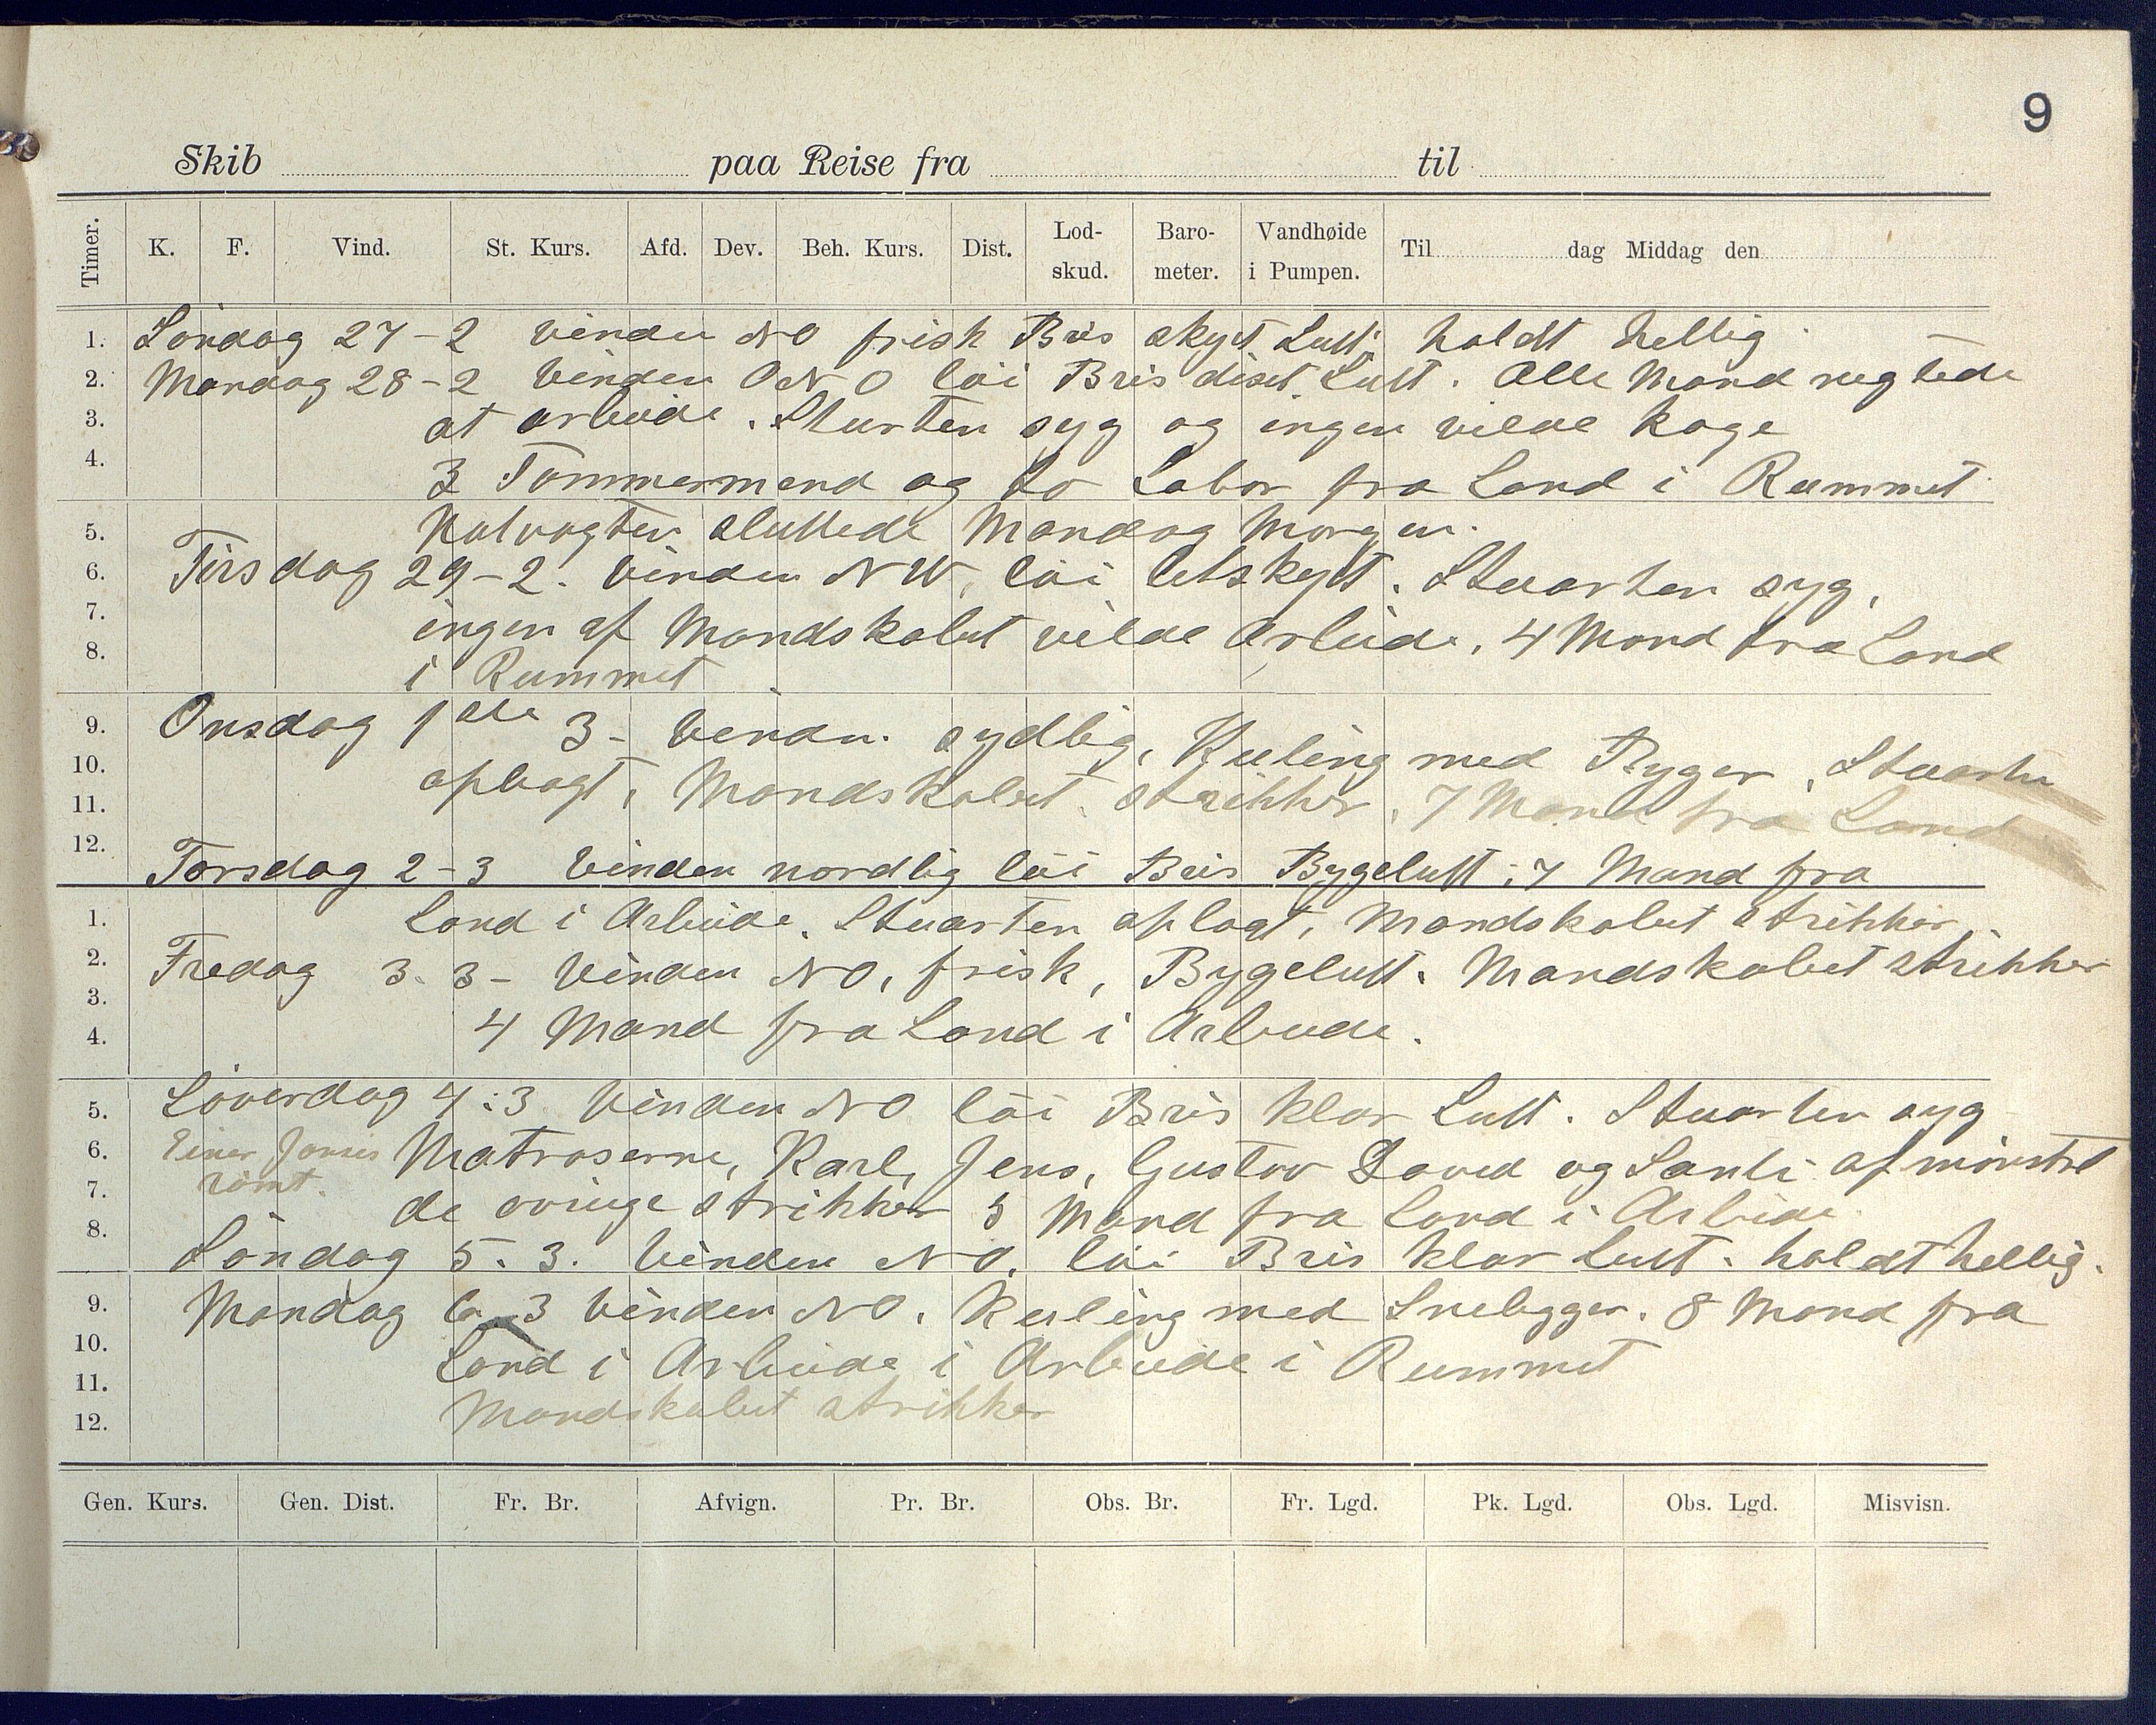 9
Skib paa Reise fra til
Timer. K. F. Vind. St. Kurs. Afd. Dev. Beh. Kurs. Dist. Lod-skud. Baro-meter. Vandhøide i Pumpen. Til dag Middag den
1. Söndag 27-2 Vinden NO frisk Bris skyet Luft. holdt hellig.
2. Mandag 28-2 Vinden ONO löi Bris diset Luft. Alle Mand negtede
3. at arbeide. Stuarten syg og ingen vilde koge
4. 3 Tömmermend og to Labor fra Land i Rummet
5. Natvagten sluttede Mandag Morgen.
6. Tirsdag 29-2. Vinden NW, löi letskyet. Stuarten syg,
7. ingen af Mandskabet vilde Arbeide. 4 Mand fra Land
8. i Rummet
9. Onsdag 1ste 3- Vinden sydlig, Kuling med Byger, Stuarten
10. oplagt, Mandskabet strikker, 7 Mand fra Land
11.
12. Torsdag 2-3 Vinden nordlig löi Bris Bygeluft. 7 Mand fra
1. Land i Arbeide. Stuarten oplagt, Mandskabet strikker.
2. Fredag 3. 3- Vinden NO, frisk, Bygeluft. Mandskabet strikker
3. 4 Mand fra Land i Arbeide.
4.
5. Löverdag 4.3 Vinden NO löi Bris klar Luft. Stuarten syg
6. Einer römt. Matroserne, Karl, Jens, Gustav David og Santi afmönstret
7. de övrige strikker 5 Mand fra Land i Arbeide.
8. Söndag 5. 3. Vinden NO. löi Bris klar Luft. holdt hellig.
9. Mandag 6-3 Vinden NO. Kuling med Snebyger. 8 Mand fra
10. Land i Arbeide i Arbeide i Rummet
11. Mandskabet strikker
12.
Gen. Kurs. Gen. Dist. Fr. Br. Afvign. Pr. Br. Obs. Br. Fr. Lgd. Pk. Lgd. Obs. Lgd. Misvisn.